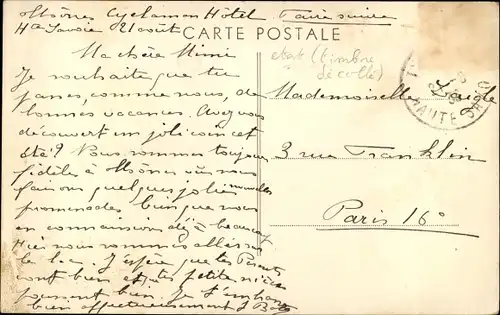 Thônes Cyclamen Hôtel Faire suivre
Hte Savoie 21 août
CARTE POSTALE
Ma chère Mimi
Je souhaite que tu
passes, comme nous, de
bonnes vacances. Avez vous
découvert un joli coin cet
été? Vous sommes toujours
fidèles à Thônes où nous
faisons quelques jolies nouvelles
promenades bien que nous
en connaissions déjà beaucoup
Hier nous sommes allés sur
le lac. J'espère que tes Parents
vont bien et tes petites nièces
poussent bien. Je t'embrasse
bien affectueusement
état (timbre
décollé)
HAUTE
Mademoiselle Laigle
3 rue Franklin
Paris 16e